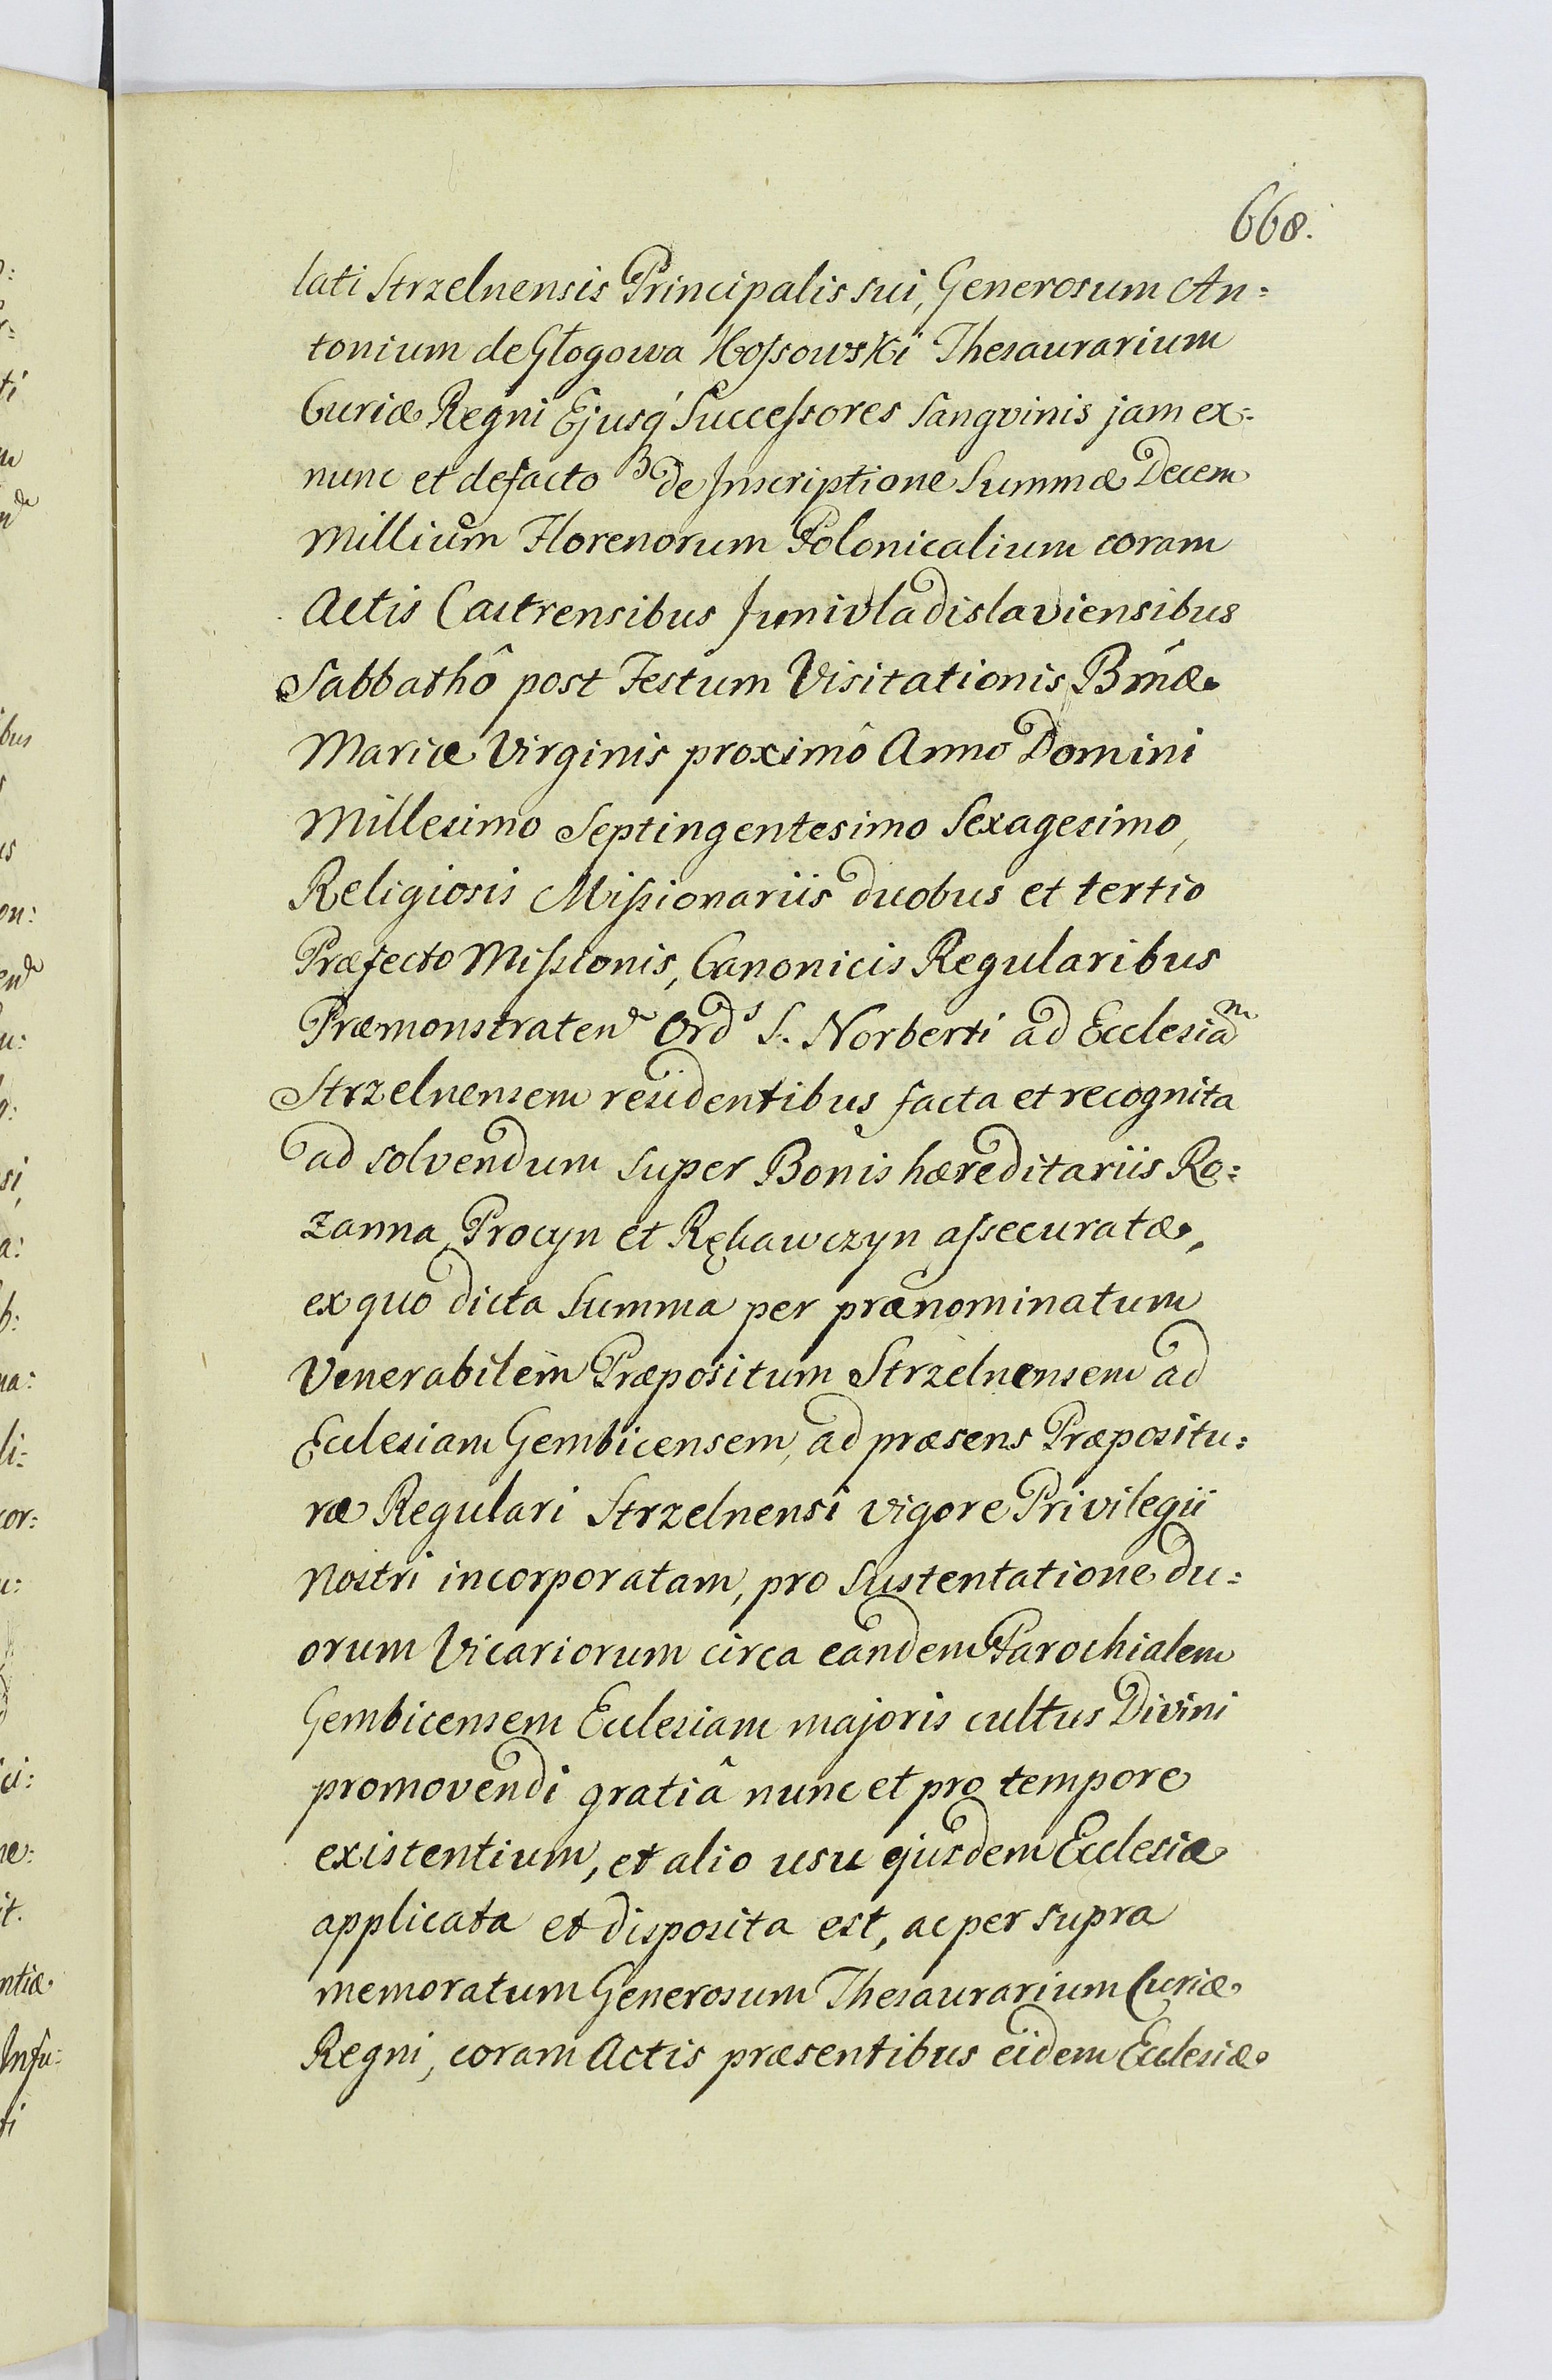 668.
lati Strzelnensis Principalis sui, Generosum An=
tonium de Głogowa Kossowski Thesaurarium
Curiæ Regni Ejusq́ Successores Sangvinis jam ex=
nunc et defacto de Inscriptione Summæ Decem
Millium Florenorum Polonicalium coram
Actis Castrensibus Junivladislaviensibus
Sabbathô post Festum Visitationis Bmæ
Mariæ Virginis proximô Anno Domini
Millesimo Septingentesimo Sexagesimo,
Religiosis Missionariis duobus et tertio
Præfecto Missionis, Canonicis Regularibus
Præmonstraten Ord^s S. Norberti ad Ecclesia^m
Strzelnensem residentibus facta et recognita
ad solvendum super Bonis hæreditariis Ro=
zanna, Procyn et Rękawczyn assecuratæ,
ex quo dicta Summa per prænominatum
Venerabilem Præpositum Strzelnensem ad
Ecclesiam Gembicensem, ad præsens Præpositu=
ræ Regulari Strzelnensi vigore Privilegii
Nostri incorporatam, pro Sustentatione du=
orum Vicariorum circa eandem Parochialem
Gembicensem Ecclesiam majoris cultus Divini
promovendi gratiâ nunc et pro tempore
existentium, et alio usu ejusdem Ecclesiæ
applicata et disposita est, ac per supra
memoratum Generosum Thesaurarium Curiæ
Regni, coram Actis præsentibus eidem Ecclesiæ